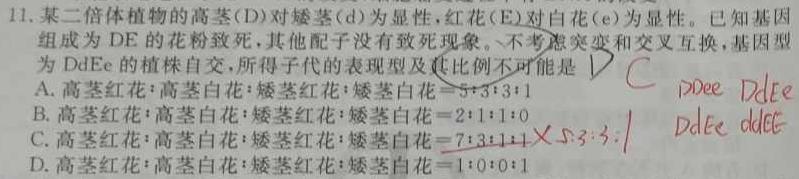 11. 某二倍体植物的高茎(D)对矮茎(d)为显性,红花(E)对白花(e)为显性。已知基因
组成为 DE 的花粉致死,其他配子没有致死现象。不考虑突变和交叉互换,基因型
为 DdEe 的植株自交,所得子代的表现型及其比例不可能是 D C
A. 高茎红花∶高茎白花∶矮茎红花∶矮茎白花=5∶3∶3∶1
DDee DdEe
B. 高茎红花∶高茎白花∶矮茎红花∶矮茎白花=2∶1∶1∶0
DdEe ddEE
C. 高茎红花∶高茎白花∶矮茎红花∶矮茎白花=7∶3∶1∶1 × 5:3:3:1
D. 高茎红花∶高茎白花∶矮茎红花∶矮茎白花=1∶0∶0∶1